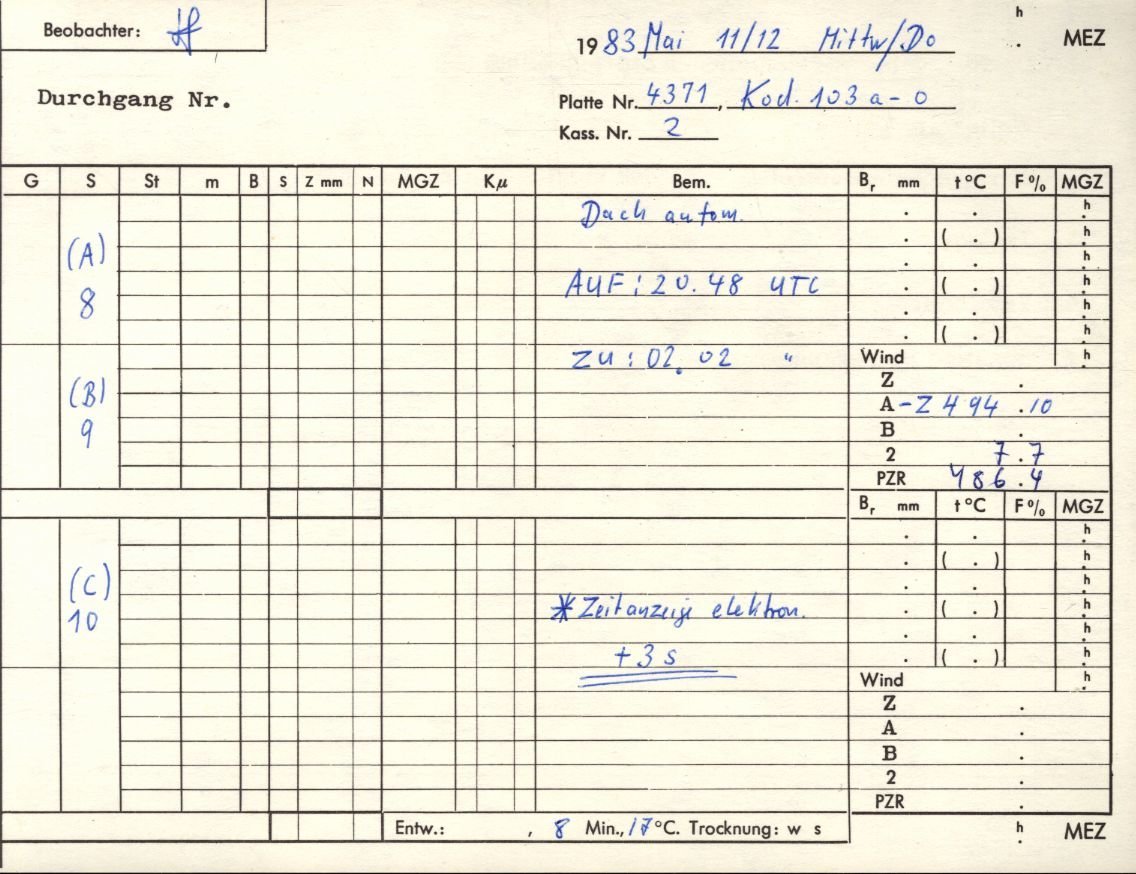 Beobachter:
h
1983 Mai 11/12 Mittw/Do . MEZ
Durchgang Nr.
Platte Nr. 4371, Kod. 103 a-o
Kass. Nr. 2
G S St m B S Z mm N MGZ Kμ Bem. Br mm t °C F % MGZ
Dach autom. . . h
. ( . ) h
(A) . . h
8 AUF: 20.48 UTC . ( . ) h
. . h
. ( . ) h
zu: 02.02 " Wind h
Z .
(B) A -Z 494 .10
9 B .
2 7.7
PZR 486.4
Br mm t °C F % MGZ
. . h
. ( . ) h
(C) . . h
10 * Zeitanzeige elektron. . ( . ) h
. . h
+3 s . ( . ) h
Wind h
Z .
A .
B .
2 .
PZR .
Entw.: , 8 Min., 17 °C. Trocknung: w s h . MEZ